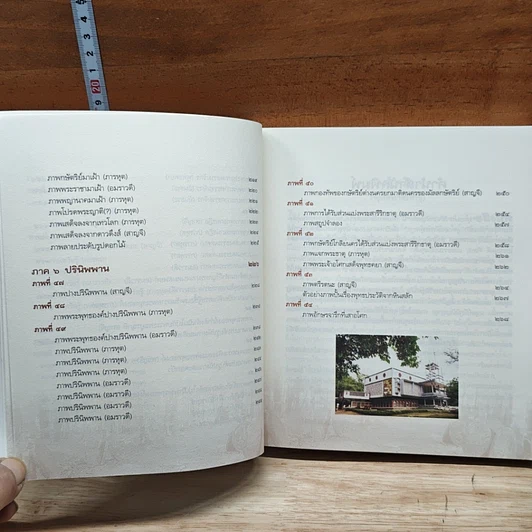 ภาพกษัตริย์มาเฝ้า (ภารหุต)
ภาพพระราชามาเฝ้า (อมราวดี)
ภาพพญานาคมาเฝ้า (ภารหุต)
ภาพโปรดพระญาติ(?) (ภารหุต)
ภาพเสด็จลงจากเทวโลก (ภารหุต)
ภาพเสด็จลงจากดาวดึงส์ (สาญจี)
ภาพลายประดับรูปดอกไม้
ภาค ๖ ปรินิพพาน
ภาพที่ ๔๗
ภาพปางปรินิพพาน (สาญจี)
ภาพที่ ๔๘
ภาพพระพุทธองค์ปางปรินิพพาน (ภารหุต)
ภาพที่ ๔๙
ภาพพระพุทธองค์ปางปรินิพพาน (อมราวดี)
ภาพปรินิพพาน (ภารหุต)
ภาพปรินิพพาน (ภารหุต)
ภาพปรินิพพาน (ภารหุต)
ภาพปรินิพพาน (อมราวดี)
ภาพปรินิพพาน (อมราวดี)
ภาพปรินิพพาน (อมราวดี)
ภาพปรินิพพาน (อมราวดี)
ภาพที่ ๕๐
ภาพกองทัพของกษัตริย์ต่างนครยกมาติดนครของมัลลกษัตริย์ (สาญจี) ๒๕๐
ภาพที่ ๕๑
ภาพการได้รับส่วนแบ่งพระสารีริกธาตุ (อมราวดี) ๒๕๔
ภาพสรุปจำลอง
ภาพที่ ๕๒
ภาพกษัตริย์โกลิยนครได้รับส่วนแบ่งพระสารีริกธาตุ (อมราวดี)
ภาพแจกพระธาตุ (ภารหุต)
ภาพพระเจ้าอโศกเสด็จพุทธคยา (สาญจี)
ภาพที่ ๕๓
ภาพตรีรตนะ (สาญจี)
ตัวอย่างภาพปั้นเรื่องพุทธประวัติจากหินสลัก ๒๖๗
ภาพที่ ๕๔
ภาพอักษรจารึกที่เสาอโศก ๒๖๘